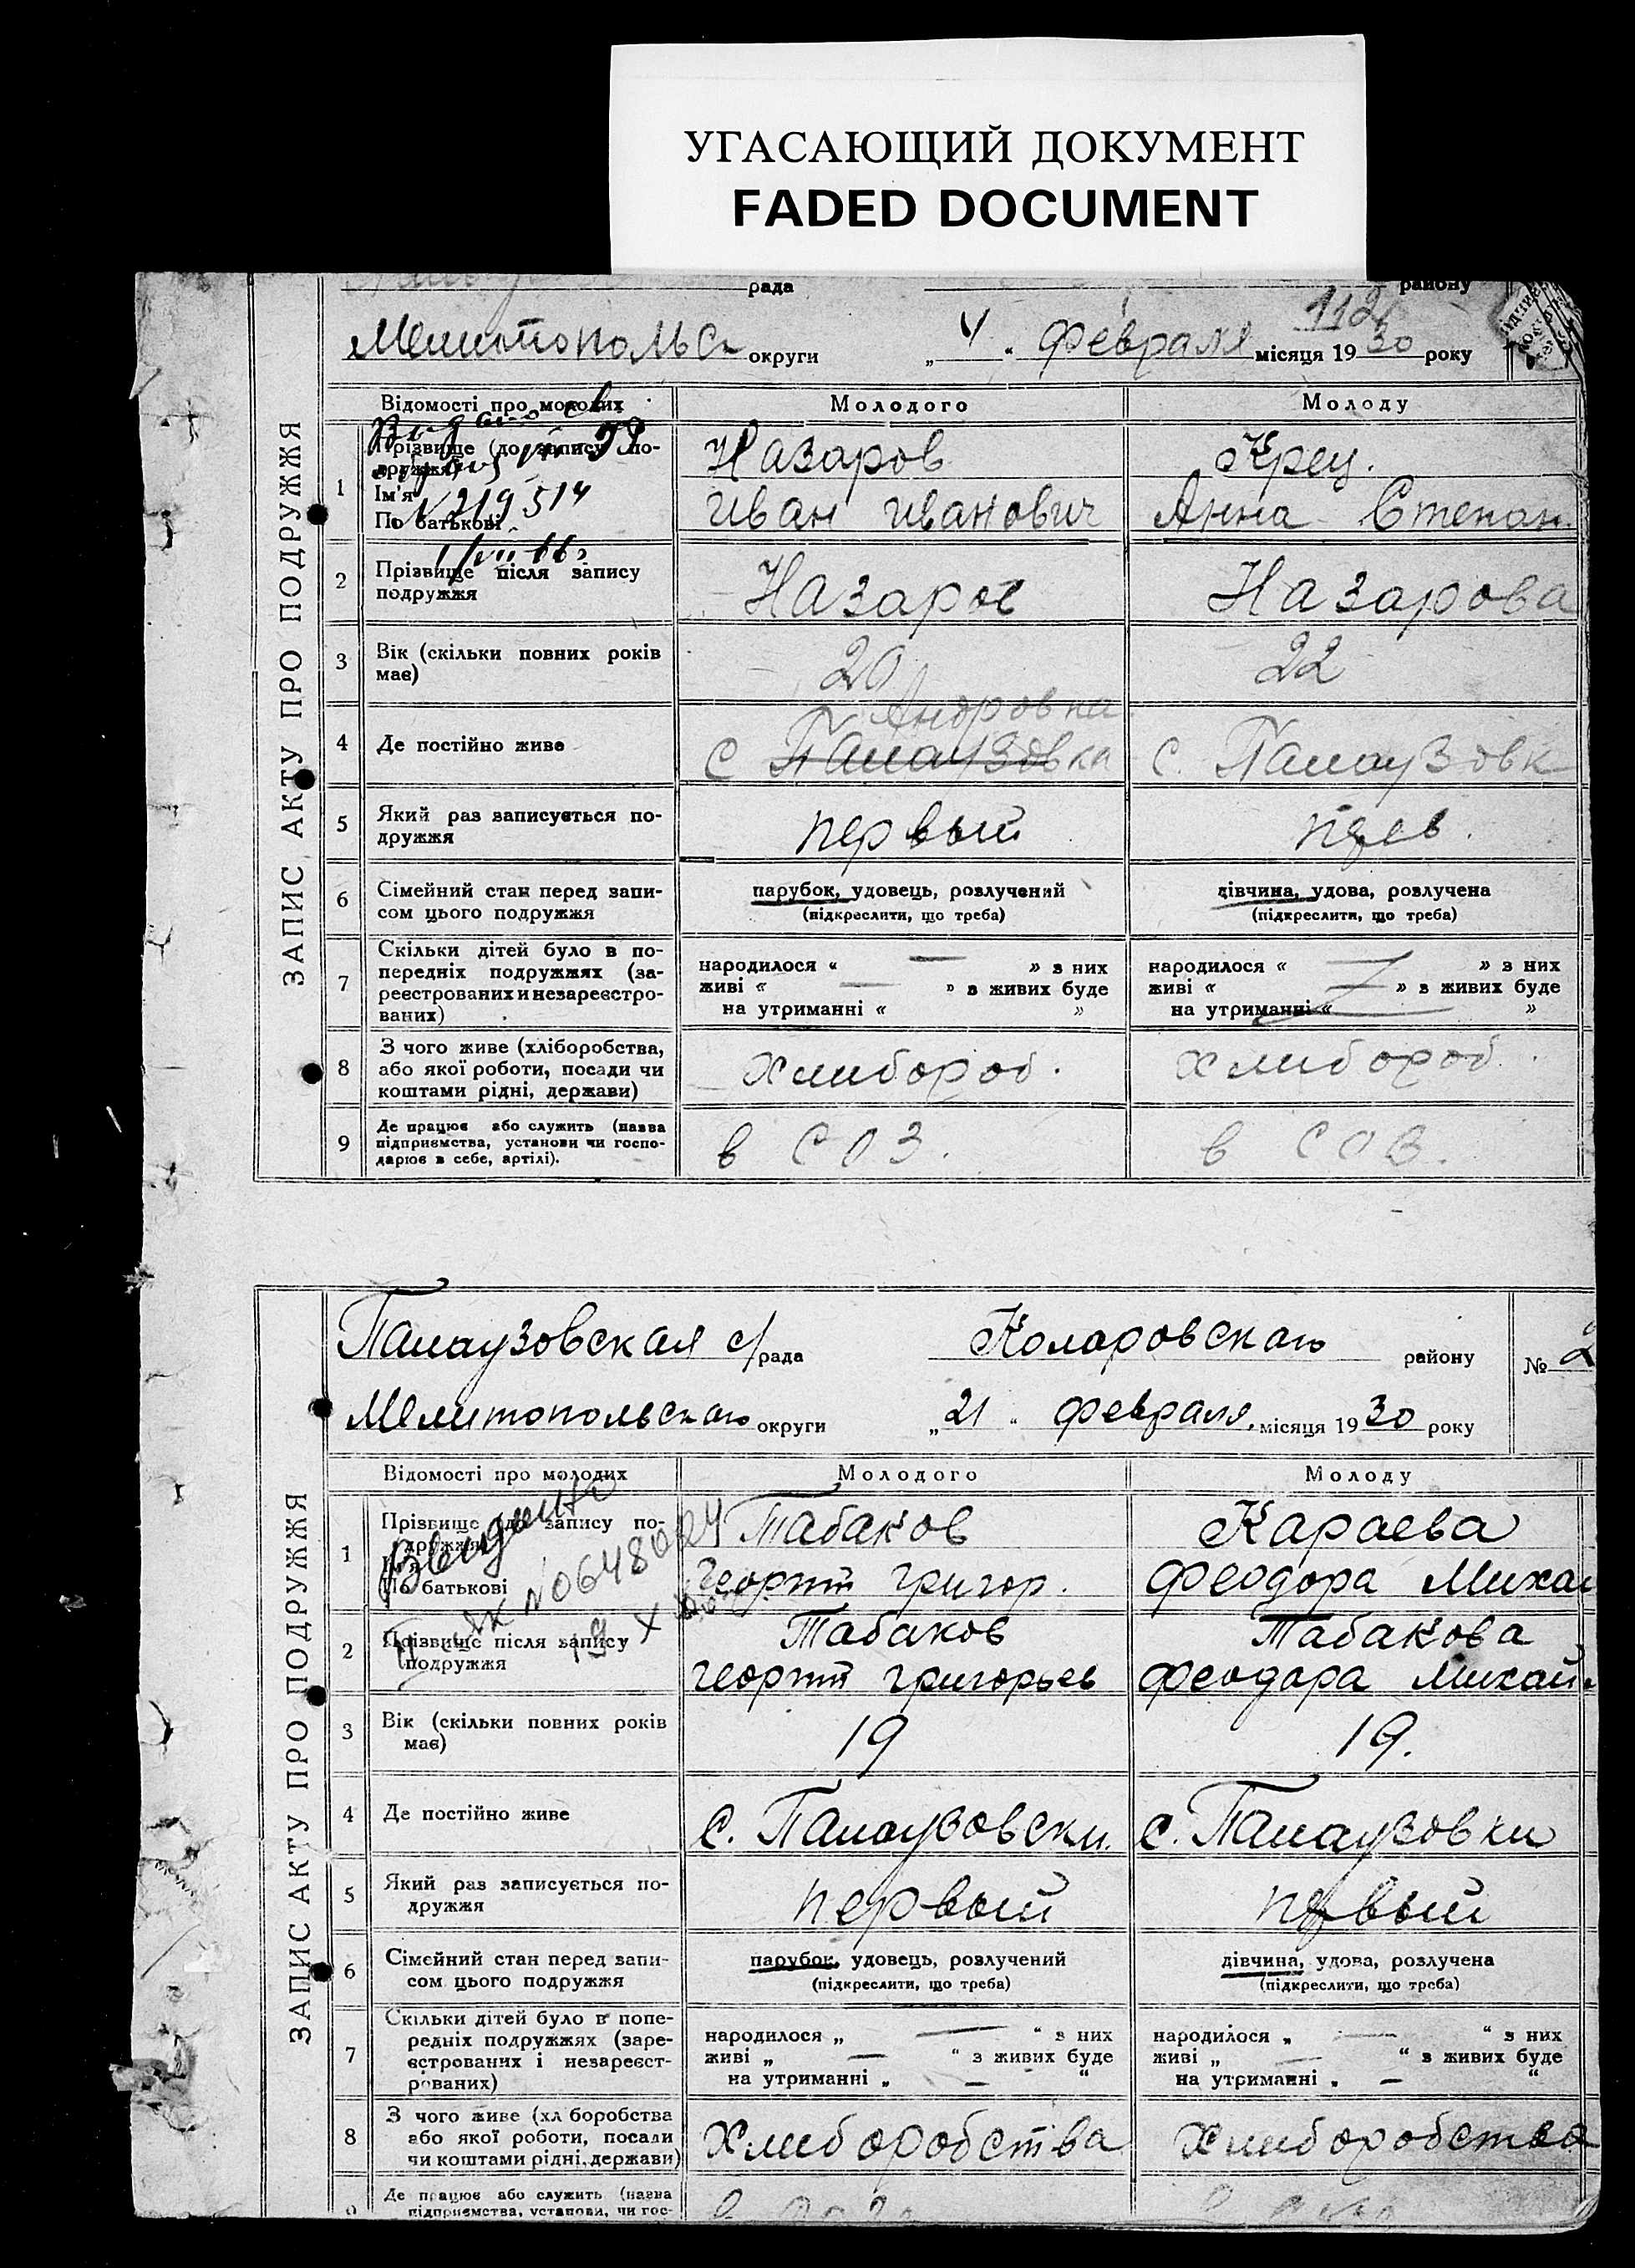 УГАСАЮЩИЙ ДОКУМЕНТ
FADED DOCUMENT
рада району
112
Мелитопольск округи „ 4 “ февраля місяця 1930 року
ЗАПИС АКТУ ПРО ПОДРУЖЖЯ
Відомості про молодих Молодого Молоду
1 Прізвище (до запису подружжя) Назаров Крец.
Ім'я
По батькові Иван Иванович Анна Степан.
№ 219514
2 Прізвище після запису подружжя Назаров Назарова
3 Вік (скільки повних років має) 20 22
Андровка
4 Де постійно живе с Палаузовка с. Палаузовк
5 Який раз записується по-
дружжя первый перв.
6 Сімейний стан перед запи- парубок, удовець, розлучений дівчина, удова, розлучена
сом цього подружжя (підкреслити, що треба) (підкреслити, що треба)
7 Скільки дітей було в по-
передніх подружжях (за- народилося « — » з них народилося « — » з них
реєстрованих и незареєстро- живі « — » з живих буде живі « — » з живих буде
ваних) на утриманні « » на утриманні « »
8 З чого живе (хліборобства,
або якої роботи, посади чи Хлибороб. Хлибороб.
коштами рідні, держави)
9 Де працює або служить (назва
підприємства, установи чи госпо- в СОЗ. в СОЗ.
дарює в себе, артілі).
Палаузовская с/рада Коларовскаго району № 2
Мелитопольскаго округи „ 21 “ февраля, місяця 1930 року
ЗАПИС АКТУ ПРО ПОДРУЖЖЯ
Відомості про молодих Молодого Молоду
1 Прізвище до запису по-
дружжя Табаков Караева
По батькові Георгий Григор. Феодора Михай
2 Прізвище після запису Табаков Табакова
подружжя Георгий Григорьев Феодора Михай
3 Вік (скільки повних років
має) 19 19.
4 Де постійно живе с. Палаузовски. с. Палаузовки
5 Який раз записується по-
дружжя первый первый
6 Сімейний стан перед запи- парубок, удовець, розлучений дівчина, удова, розлучена
сом цього подружжя (підкреслити, що треба) (підкреслити, що треба)
7 Скільки дітей було в попе-
редніх подружжях (заре- народилося „ — “ з них народилося „ — “ з них
єстрованих і незареєст- живі „ — “ з живих буде живі „ — “ з живих буде
рованих) на утриманні „ — “ на утриманні „ — “
8 З чого живе (хліборобства
або якої роботи, посади Хлиборобства Хлиборобства
чи коштами рідні, держави)
9 Де працює або служить (назва
підприємства, установи, чи гос-